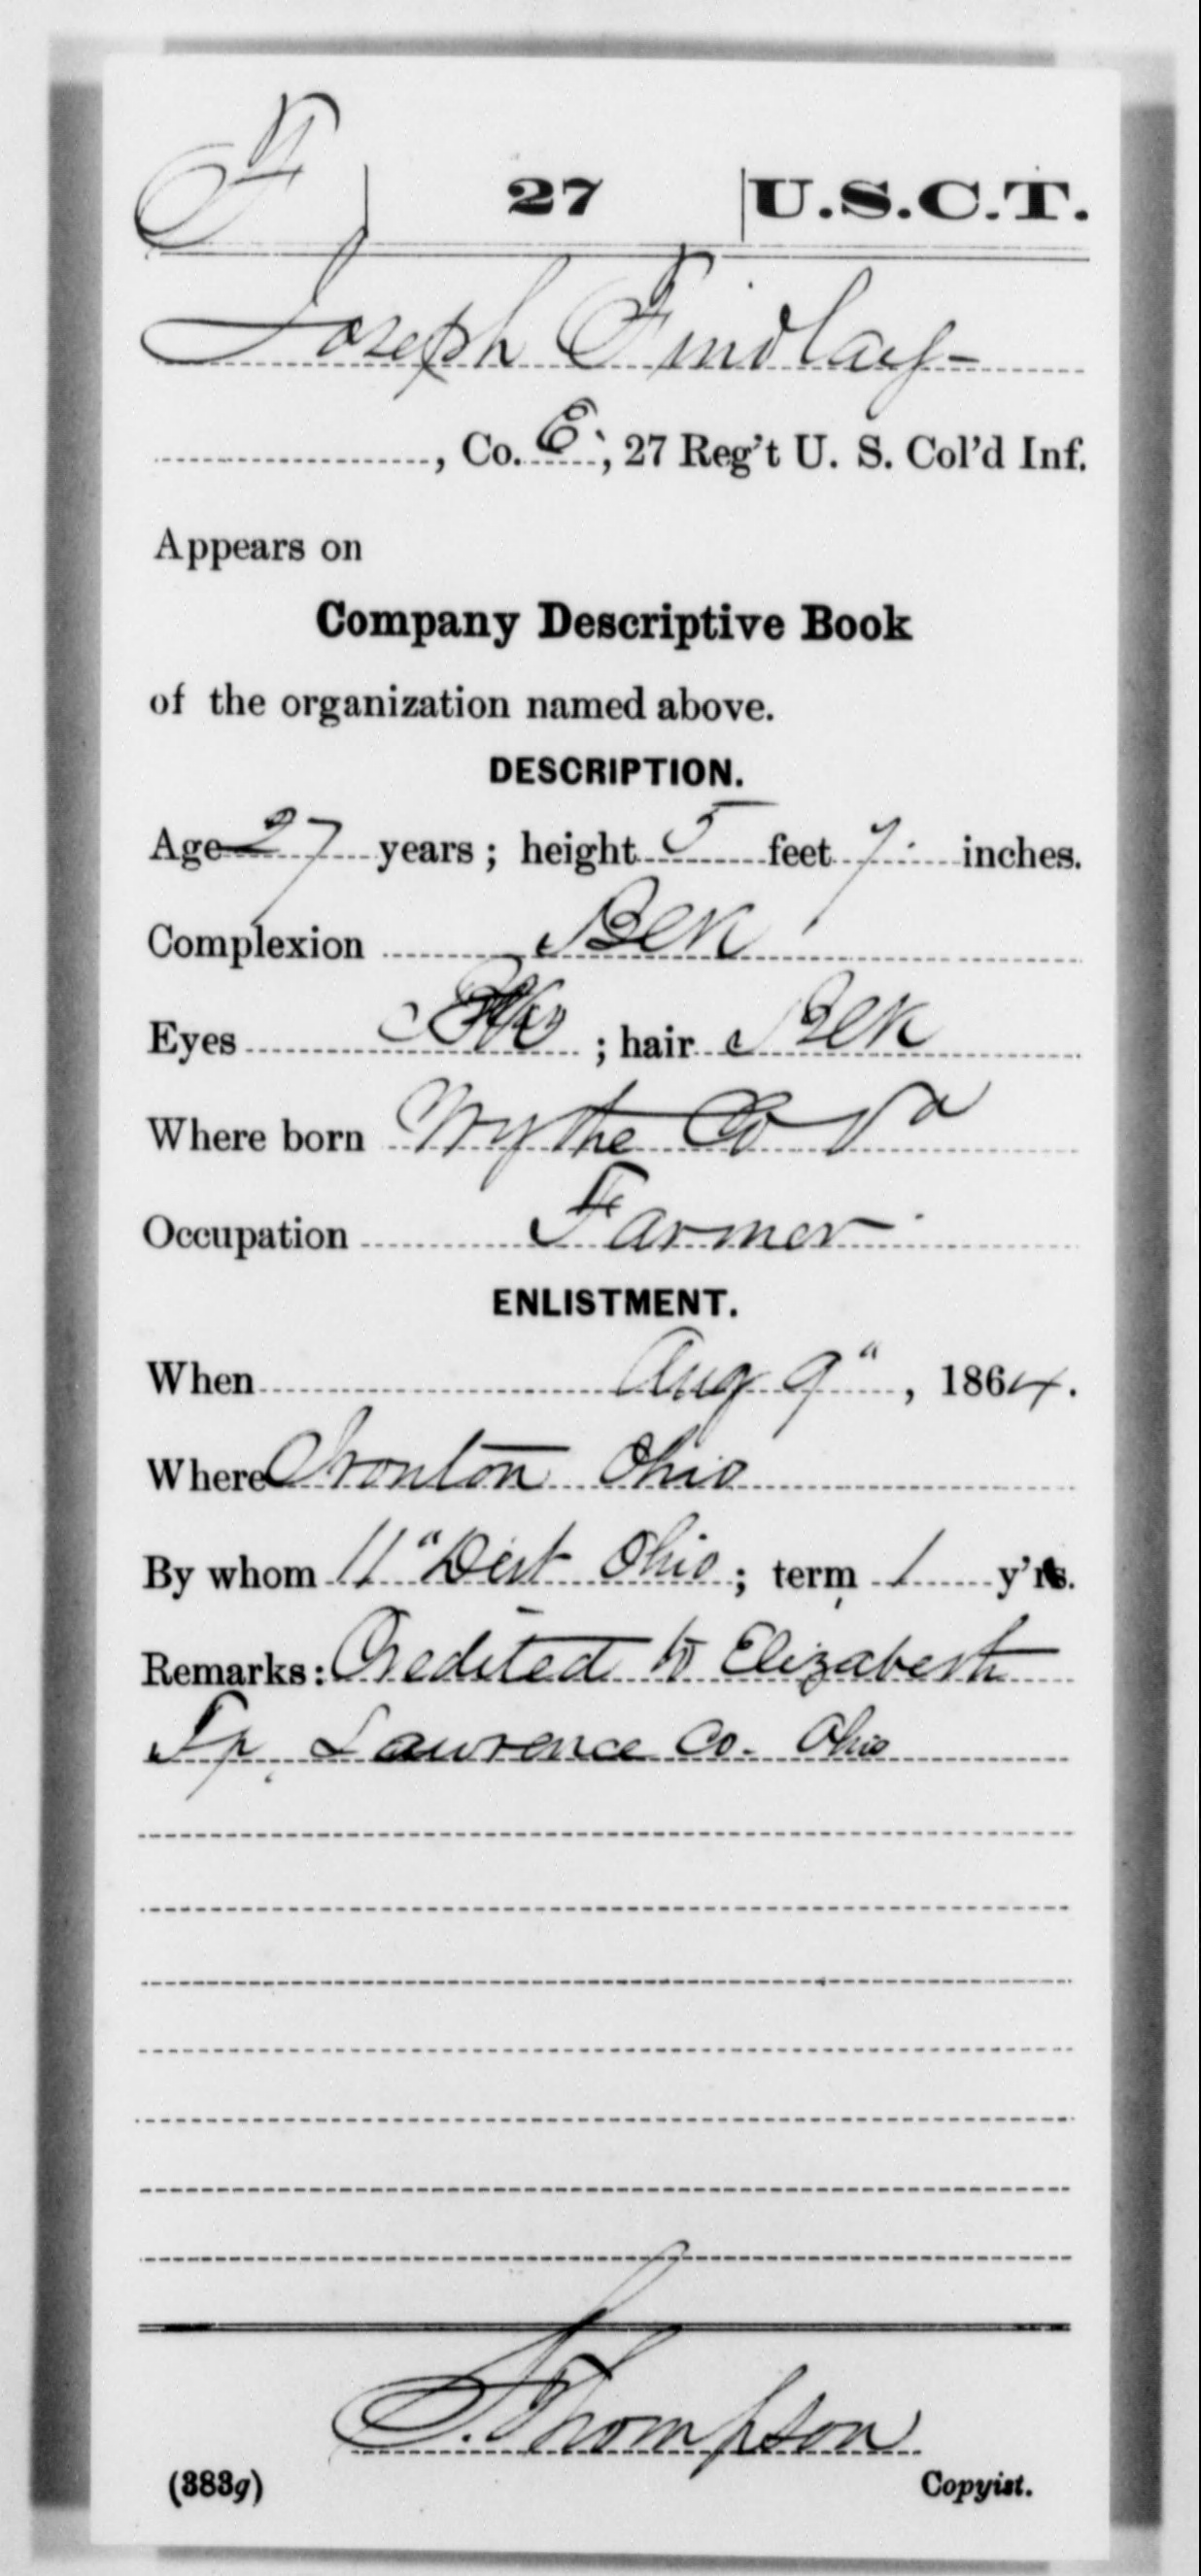 F | 27 | U.S.C.T.
Joseph Findlay
, Co. E, 27 Reg't U. S. Col'd Inf.
Appears on
Company Descriptive Book
of the organization named above.
DESCRIPTION.
Age 27 years; height 5 feet 7 inches.
Complexion Blk
Eyes ; hair Blk
Where born Wythe Co Va
Occupation Farmer
ENLISTMENT.
When Aug 9", 1864.
Where Ironton Ohio
By whom 11" Dist Ohio; term 1 y'rs.
Remarks: Credited to Elizabeth
Tp, Lawrence Co. Ohio
S. Thompson
(383g) Copyist.